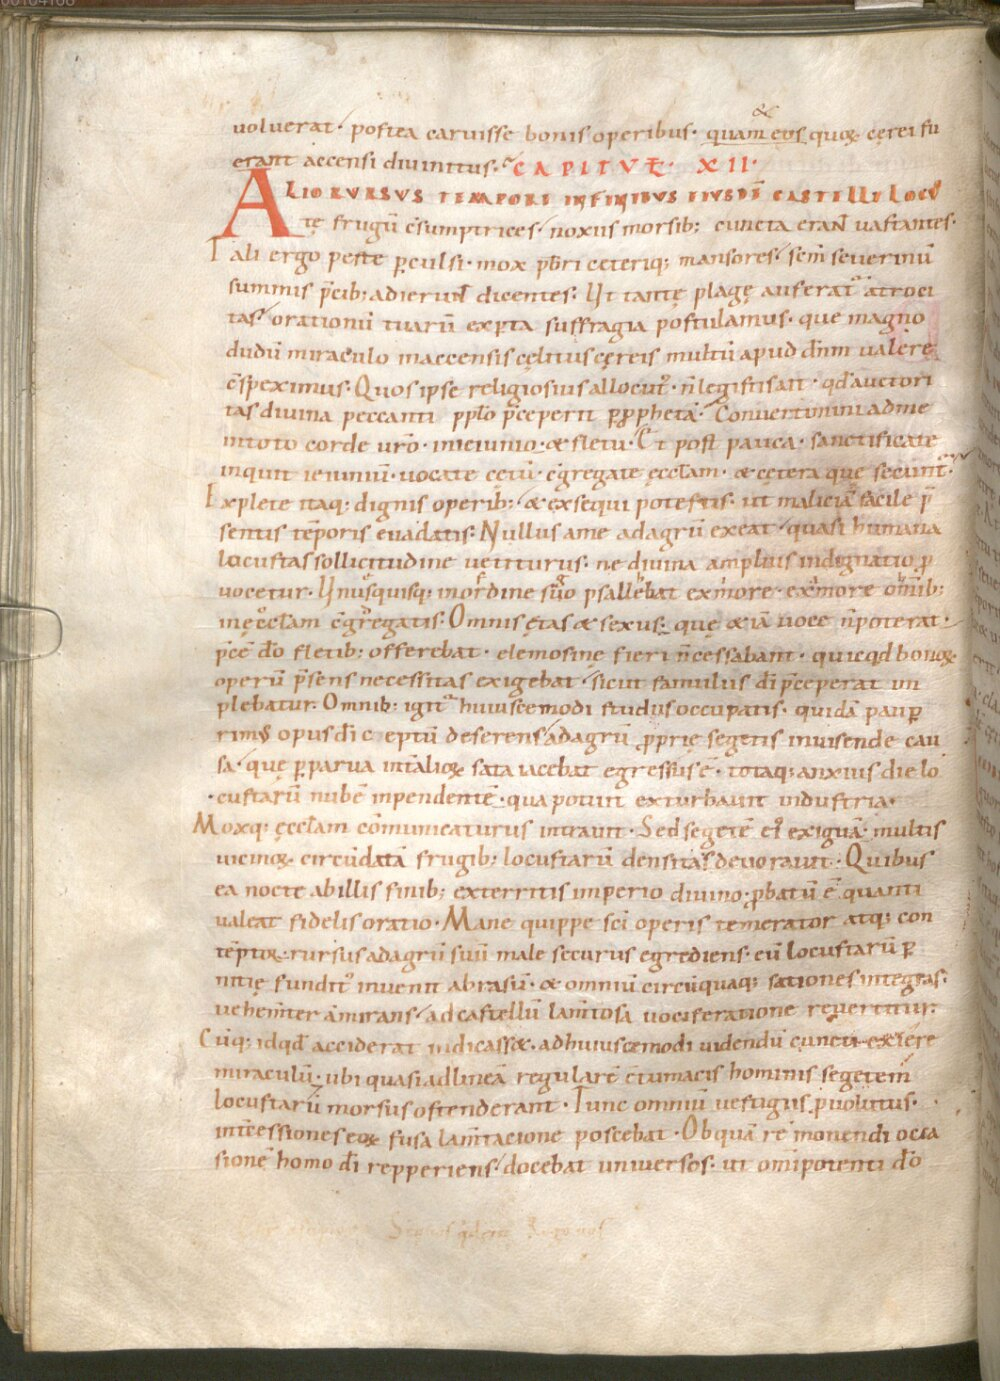 00104168
&
uoluerat· postea caruisse bonis operibus· quam eos quoꝝ cęrei fu
erant accensi diuinitus· CAPITVŁ· XII·
ALIO RVRSVS TEMPORE IN FINIBVS EIVSDĒ CASTELLI LOCVS
tę frugū c̄sumptrices noxiis morsib; cuncta erant uastantes·
Tali ergo peste p̄culsi· mox pb̄ri ceteriq; mansores sc̄m seuerinū
summis p̄cib; adierunt dicentes· Ut tantę plagę auferat atroci
tas orationū tuarū exp̄ta suffragia postulamus· que magno
dudū miraculo inaccensis cęlitus cęreis multū apud dn̄m ualere
c̄speximus· Quos ipse religiosius allocut᾽ n̄ legistis ait· qd̄ auctori
tas diuina peccanti pp̄lo p̄ceperit ꝑ ꝓphetā· Conuertimini ad me
in toto corde ur̄o· in ieiunio· & fletu· Et post pauca· sanctificate
inquit ieiuniū· uocate cętū c̄gregate ęccl̄am· & cętera que secunt᾽·
Explete itaq; dignis operib; & exsequi potestis· ut maliciā facile p̄
sentis tēporis euadatis· Nullus ame ad agrū exeat· quasi humana
locustas sollicitudine uetiturus· ne diuina amplius indignatio ꝓ
uocetur· Unusquisq; in ordine suo psallebat ex more om̄ib;
in ęccl̄am c̄gregatis· Omnis ętas & sexus· que & iā uoce n̄ poterat·
p̄ce dō fletib; offerebat· elemosine fieri n̄ cessabant· quicqd bonoꝝ
operū p̄sens necessitas exigebat· sicut famulus dī p̄ceperat im
plebatur· Omnib; igit᾽ huiuscemodi studiis occupatis· quidā paup̄
rimus opus dī ceptū deserens ad agrū ꝓprię segetis inuisende cau
sa· que ꝑ parua int̄ alioꝝ sata iacebat egressus ē· totaq; anxius die lo
custarū nubē inpendentē· qua potuit exturbauit industria·
Moxq; ęccl̄am cōmunicaturus intrauit· Sed segetē ei᾽ exiguā· multis
uicinoꝝ circūdatā frugib; locustarū densitas deuorauit· Quibus
ea nocte ab illis finib; exterritis imperio diuino· ꝓbatū ē quanti
ualeat fidelis oratio· Mane quippe sc̄i operis temerator atq; con
tēptor· rursus ad agrū suū male securus egrediens· eū locustarū ꝑ
nitię fundit᾽ inuenit abrasū· & omniū circūquaq; sationes integras·
uehem̄ter am̄irans ad castellū lam̄tosa uociferatione reuertitur·
Cūq; id qd̄ acciderat indicasset· ad huiuscemodi uidendū cuncti exiere
miraculū· ubi quasi ad lineā regularē c̄tumacis hominis segetem
locustarū morsus ostenderant· Tunc omniū uestigiis ꝓuolutus·
int̄cessiones eoꝝ fusa lam̄tacione poscebat· Ob quā rē monendi occa
sionē homo dī repperiens docebat uniuersos· ut om̄ipotenti dō